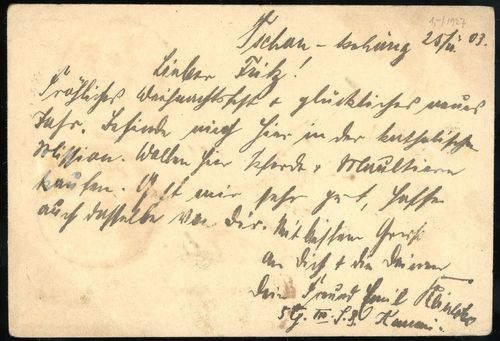 15/1927
Tschan-
Lieber Fritz!
Fröhliches Weihnachtsfest + glückliches neues
Jahr. Befinde mich hier in der katholischen
Mission. Wollen hier Pferde + Maultiere
kaufen. Geht mir sehr gut, hoffe
auch dasselbe von Dir. Mit bestem Gruß
an Dich + die Deinen
Dein Freund Emil